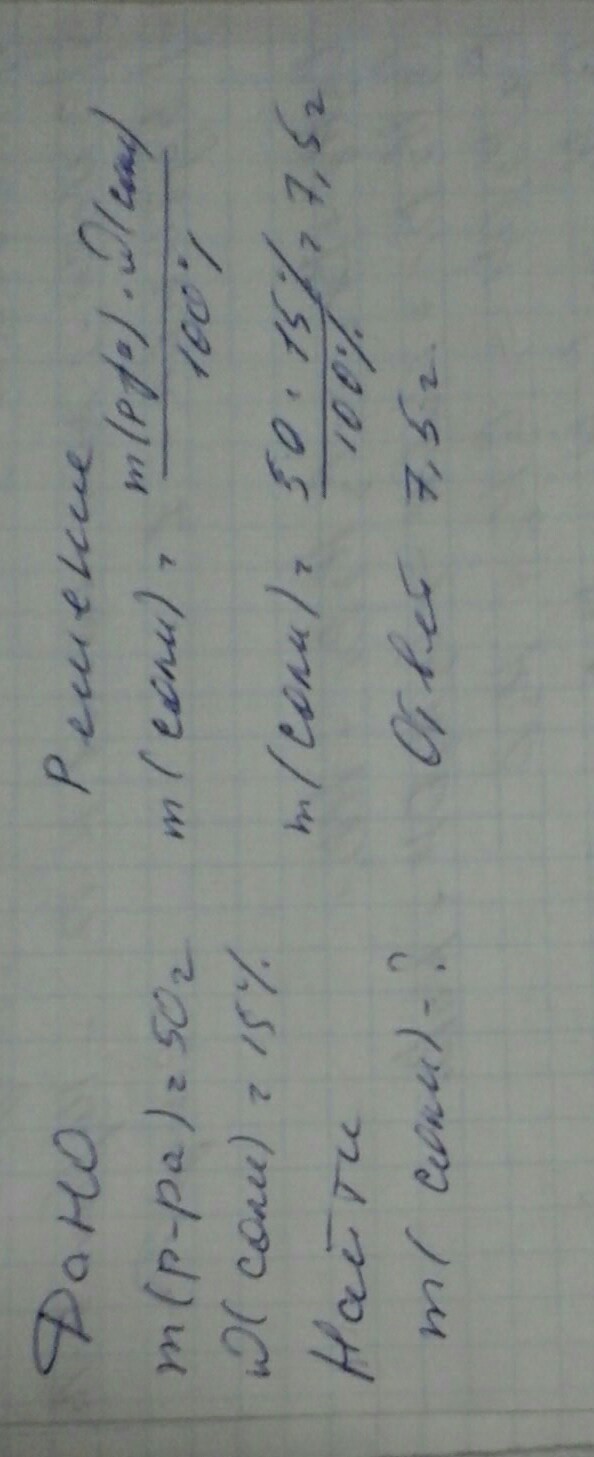 Дано
m(р-ра) = 50г
ω(соли) = 15%
Найти
m(соли)-?
Решение
m(соли) = m(р-ра) · ω(соли)
100%
m(соли) = 50 · 15% = 7,5г
100%
Ответ 7,5г